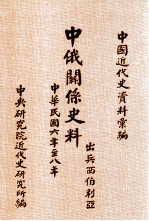 中國近代史資料彙編
中俄關係史料
出兵西伯利亞
中華民國六年至八年
中央研究院近代史研究所編